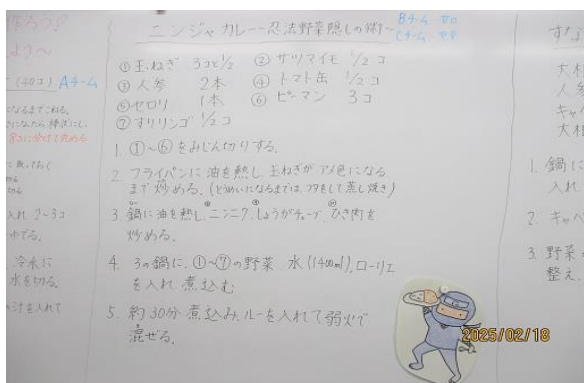 ニンジャカレー〜忍法野菜隠しの術〜
Bチーム 甘口
Cチーム 中辛
①玉ねぎ 3コと1/2 ②サツマイモ 1/2コ
③人参 2本 ④トマト缶 1/2コ
⑤セロリ 1本 ⑥ピーマン 3コ
⑦すりリンゴ 1/2コ
1. ①〜⑥をみじん切りする。
2. フライパンに油を熱し、玉ねぎがアメ色になる
まで炒める。(とうめいになるまでは、フタをして蒸し焼き)
3. 鍋に油を熱し、ニンニク、しょうがチューブ、ひき肉を
炒める。
4. 3の鍋に、①〜⑦の野菜、水(1400ml)、ローリエ
を入れ煮込む
5. 約30分煮込み、ルーを入れて弱火で
混ぜる。
作ろう♪
(40コ) Aチーム
になるまでこねる。
切る
入れ 2〜3コ
ゆでる。
冷水に
水を切る。
汁を入れて
すな
大根
人参
キャベ
大根
1. 鍋に
入れ
2. キャベ
3. 野菜
整え、
2025/02/18